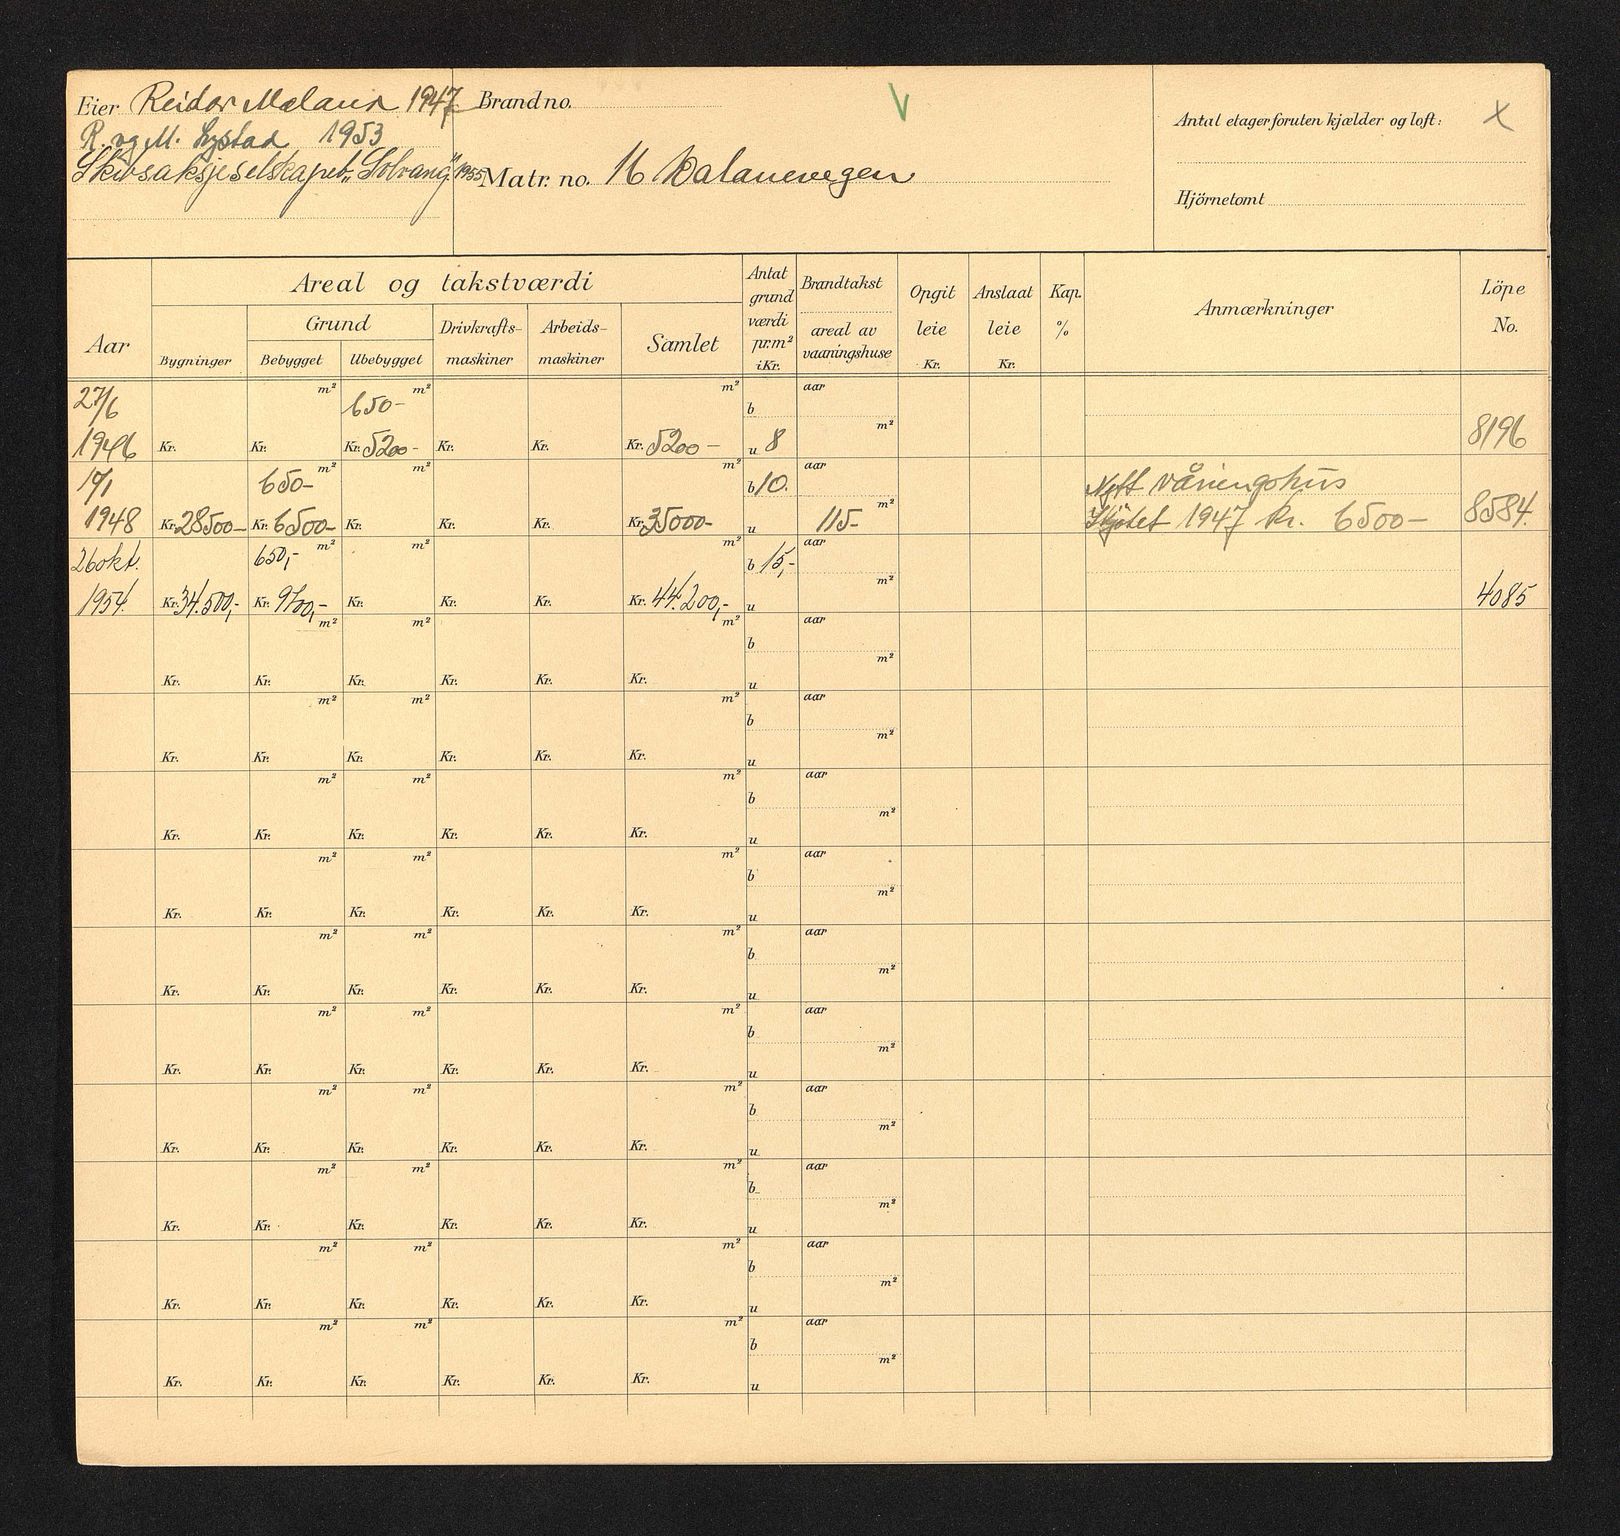 Eier Reidar Mæland 1947
R. og M. Lystad 1953
Skipsaksjeselskapet „Solvang" 1955
Brand no.
Matr. no. 16 Kalanevegen
Antal etager foruten kjælder og loft: X
Hjörnetomt
Aar
Areal og takstværdi
Bygninger
Grund
Bebygget Ubebygget
Drivkrafts-maskiner
Arbeids-maskiner
Samlet
Antat grund værdi pr. m² i Kr.
Brandtakst
areal av vaaningshuse
Opgit leie Kr.
Anslaat leie Kr.
Kap. %
Anmærkninger
Löpe No.
27/6 m² 650- m² m² b aar m²
1946 Kr. Kr. Kr. 5200- Kr. Kr. Kr. 5200- u 8 8196
17/1 650- m² m² m² b 10. aar m² Nytt våningshus
1948 Kr. 28500- Kr. 6500- Kr. Kr. Kr. Kr. 35000- u 115- Skjøtet 1947 kr. 6500- 8584.
26 okt. 650,- m² m² m² b 15,- aar m²
1954. Kr. 34.500,- Kr. 9700,- Kr. Kr. Kr. Kr. 44.200,- u 4085
m² m² m² b aar m²
Kr. Kr. Kr. Kr. Kr. Kr. u
m² m² m² b aar m²
Kr. Kr. Kr. Kr. Kr. Kr. u
m² m² m² b aar m²
Kr. Kr. Kr. Kr. Kr. Kr. u
m² m² m² b aar m²
Kr. Kr. Kr. Kr. Kr. Kr. u
m² m² m² b aar m²
Kr. Kr. Kr. Kr. Kr. Kr. u
m² m² m² b aar m²
Kr. Kr. Kr. Kr. Kr. Kr. u
m² m² m² b aar m²
Kr. Kr. Kr. Kr. Kr. Kr. u
m² m² m² b aar m²
Kr. Kr. Kr. Kr. Kr. Kr. u
m² m² m² b aar m²
Kr. Kr. Kr. Kr. Kr. Kr. u
m² m² m² b aar m²
Kr. Kr. Kr. Kr. Kr. Kr. u